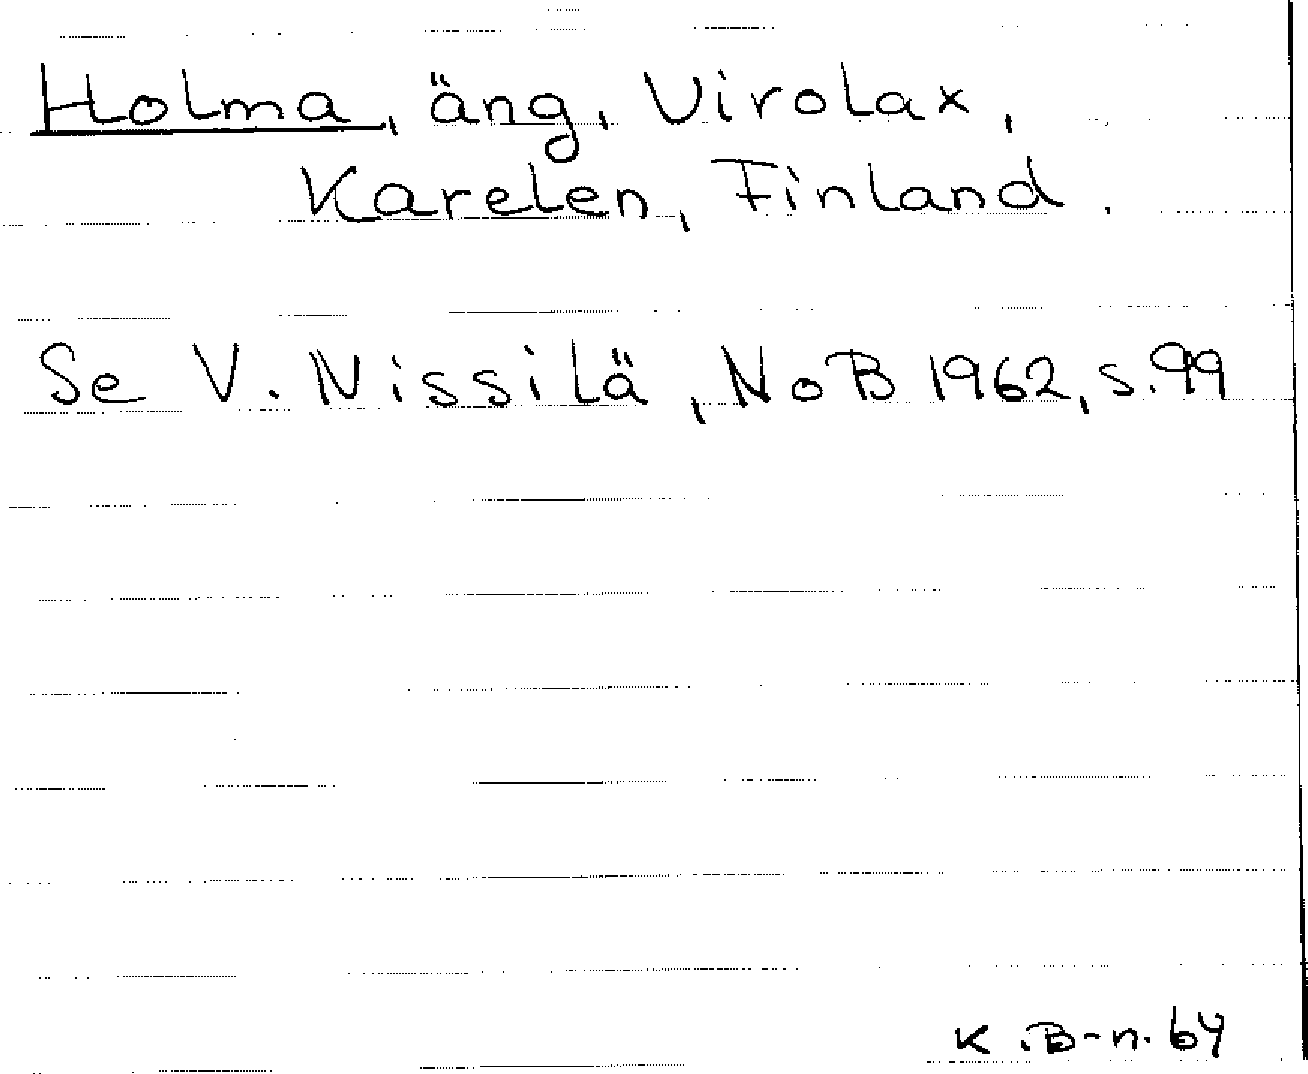 Holma, äng, Virolax,
Karelen, Finland.
Se V. Nissilä, NoB 1962, s. 99
K.B-n. 64